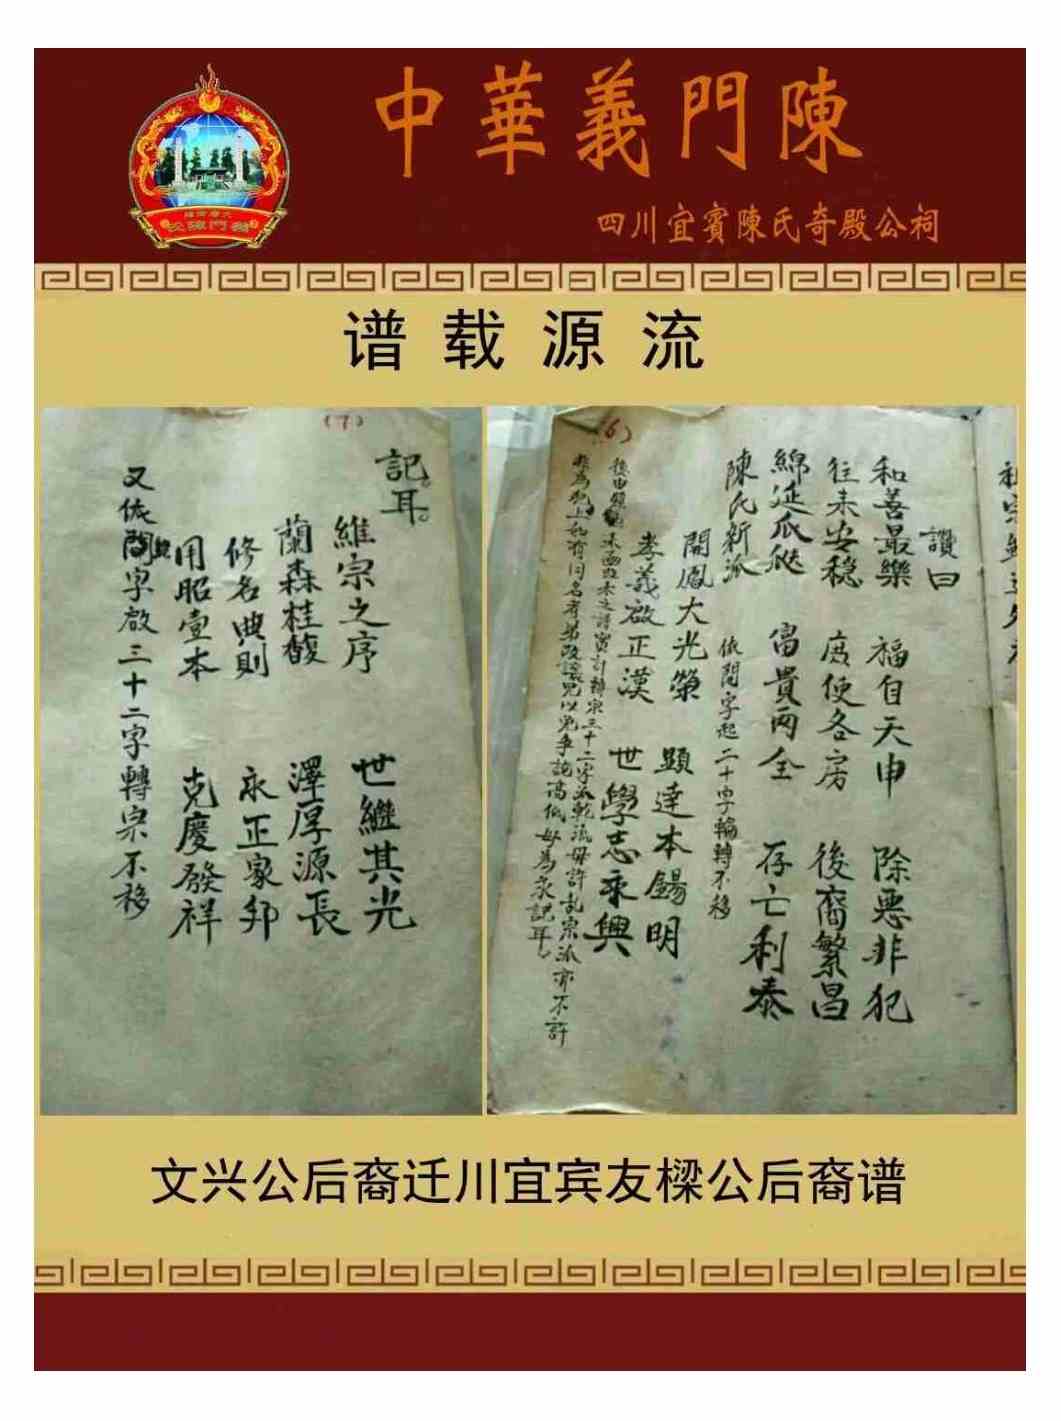 中華義門陳
四川宜賓陳氏奇殿公祠
谱载源流
(6)
讚曰
和善最樂 福自天申 除惡非犯
往来安穏 庶使各房 後裔繁昌
綿延瓜瓞 富貴兩全 存亡利泰
陳氏新派 依開字起二十字輪轉不移
開鳳大光榮 顕達本錫明
孝義啟正漢 世學志永興
(7)
記耳。
維宗之序 世繼其光
蘭森桂馥 澤厚源長
修名典則 永正家邦
用昭壹本 克慶發祥
又依開字啟三十二字轉宗不移
文兴公后裔迁川宜宾友樑公后裔谱